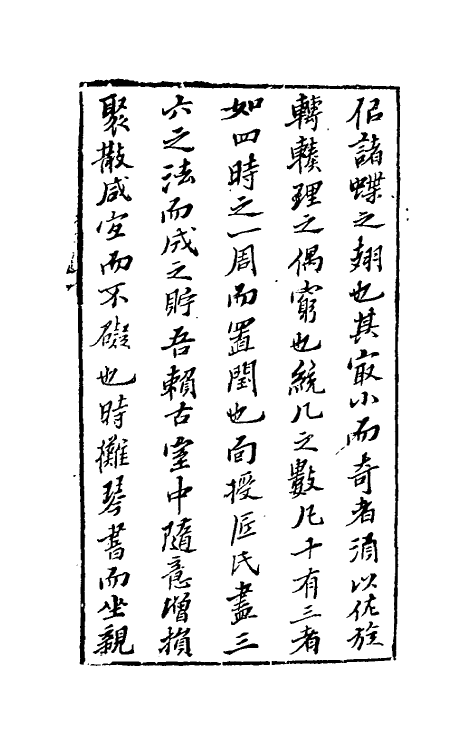 佀諸蝶之翅也其㝡小而奇者須以佐旋
轉理之偶窮也統几之數凡十有三者
如四時之一周而置閏也面授匠氏盡三
六之法而成之貯吾賴古室中隨意增損
聚散咸宜而不礙也時攤琴書而坐親